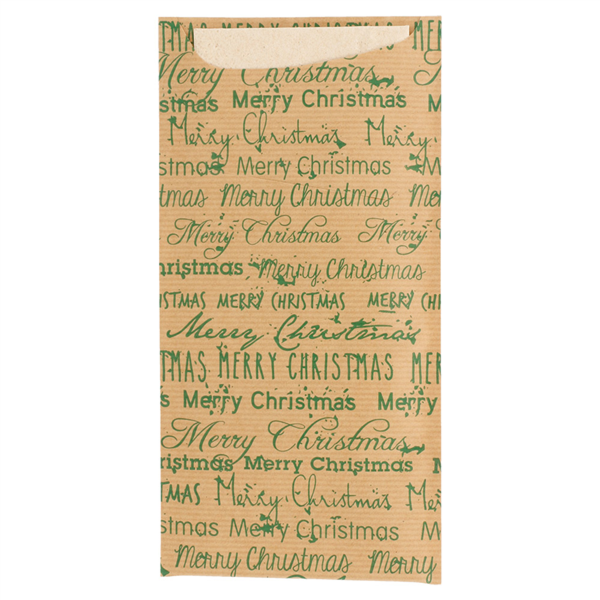 TMAS MERRY
Merry Christmas
stmas Merry Christmas
Merry Christmas Merry
stmas Merry Christmas
stmas Merry Christmas Merry
Merry Christmas Merry
hristmas Merry Christmas
ISTMAS MERRY CHRISTMAS MERRY CH
Merry Christmas
TMAS MERRY CHRISTMAS MER
s Merry Christmas Merry
Merry Christmas
ristmas Merry Christmas M
TMAS Merry Christmas
stmas Merry Christmas
Merry Christmas